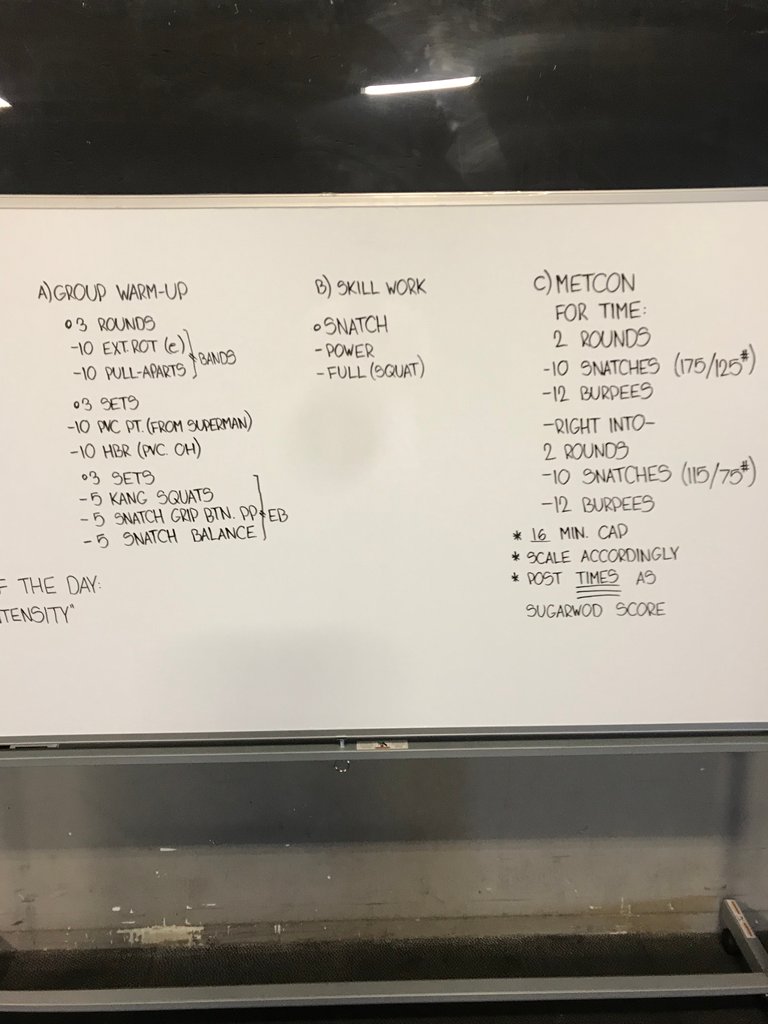 A) GROUP WARM-UP
o 3 ROUNDS
-10 EXT. ROT (e)
-10 PULL-APARTS
BANDS
o 3 SETS
-10 PVC PT. (FROM SUPERMAN)
-10 HBR (PVC. OH)
o 3 SETS
- 5 KANG SQUATS
- 5 SNATCH GRIP BTN. PP
- 5 SNATCH BALANCE
EB
F THE DAY:
TENSITY"
B) SKILL WORK
o SNATCH
- POWER
- FULL (SQUAT)
C) METCON
FOR TIME:
2 ROUNDS
-10 SNATCHES (175/125#)
-12 BURPEES
-RIGHT INTO-
2 ROUNDS
-10 SNATCHES (115/75#)
-12 BURPEES
* 16 MIN. CAP
* SCALE ACCORDINGLY
* POST TIMES AS
SUGARWOD SCORE